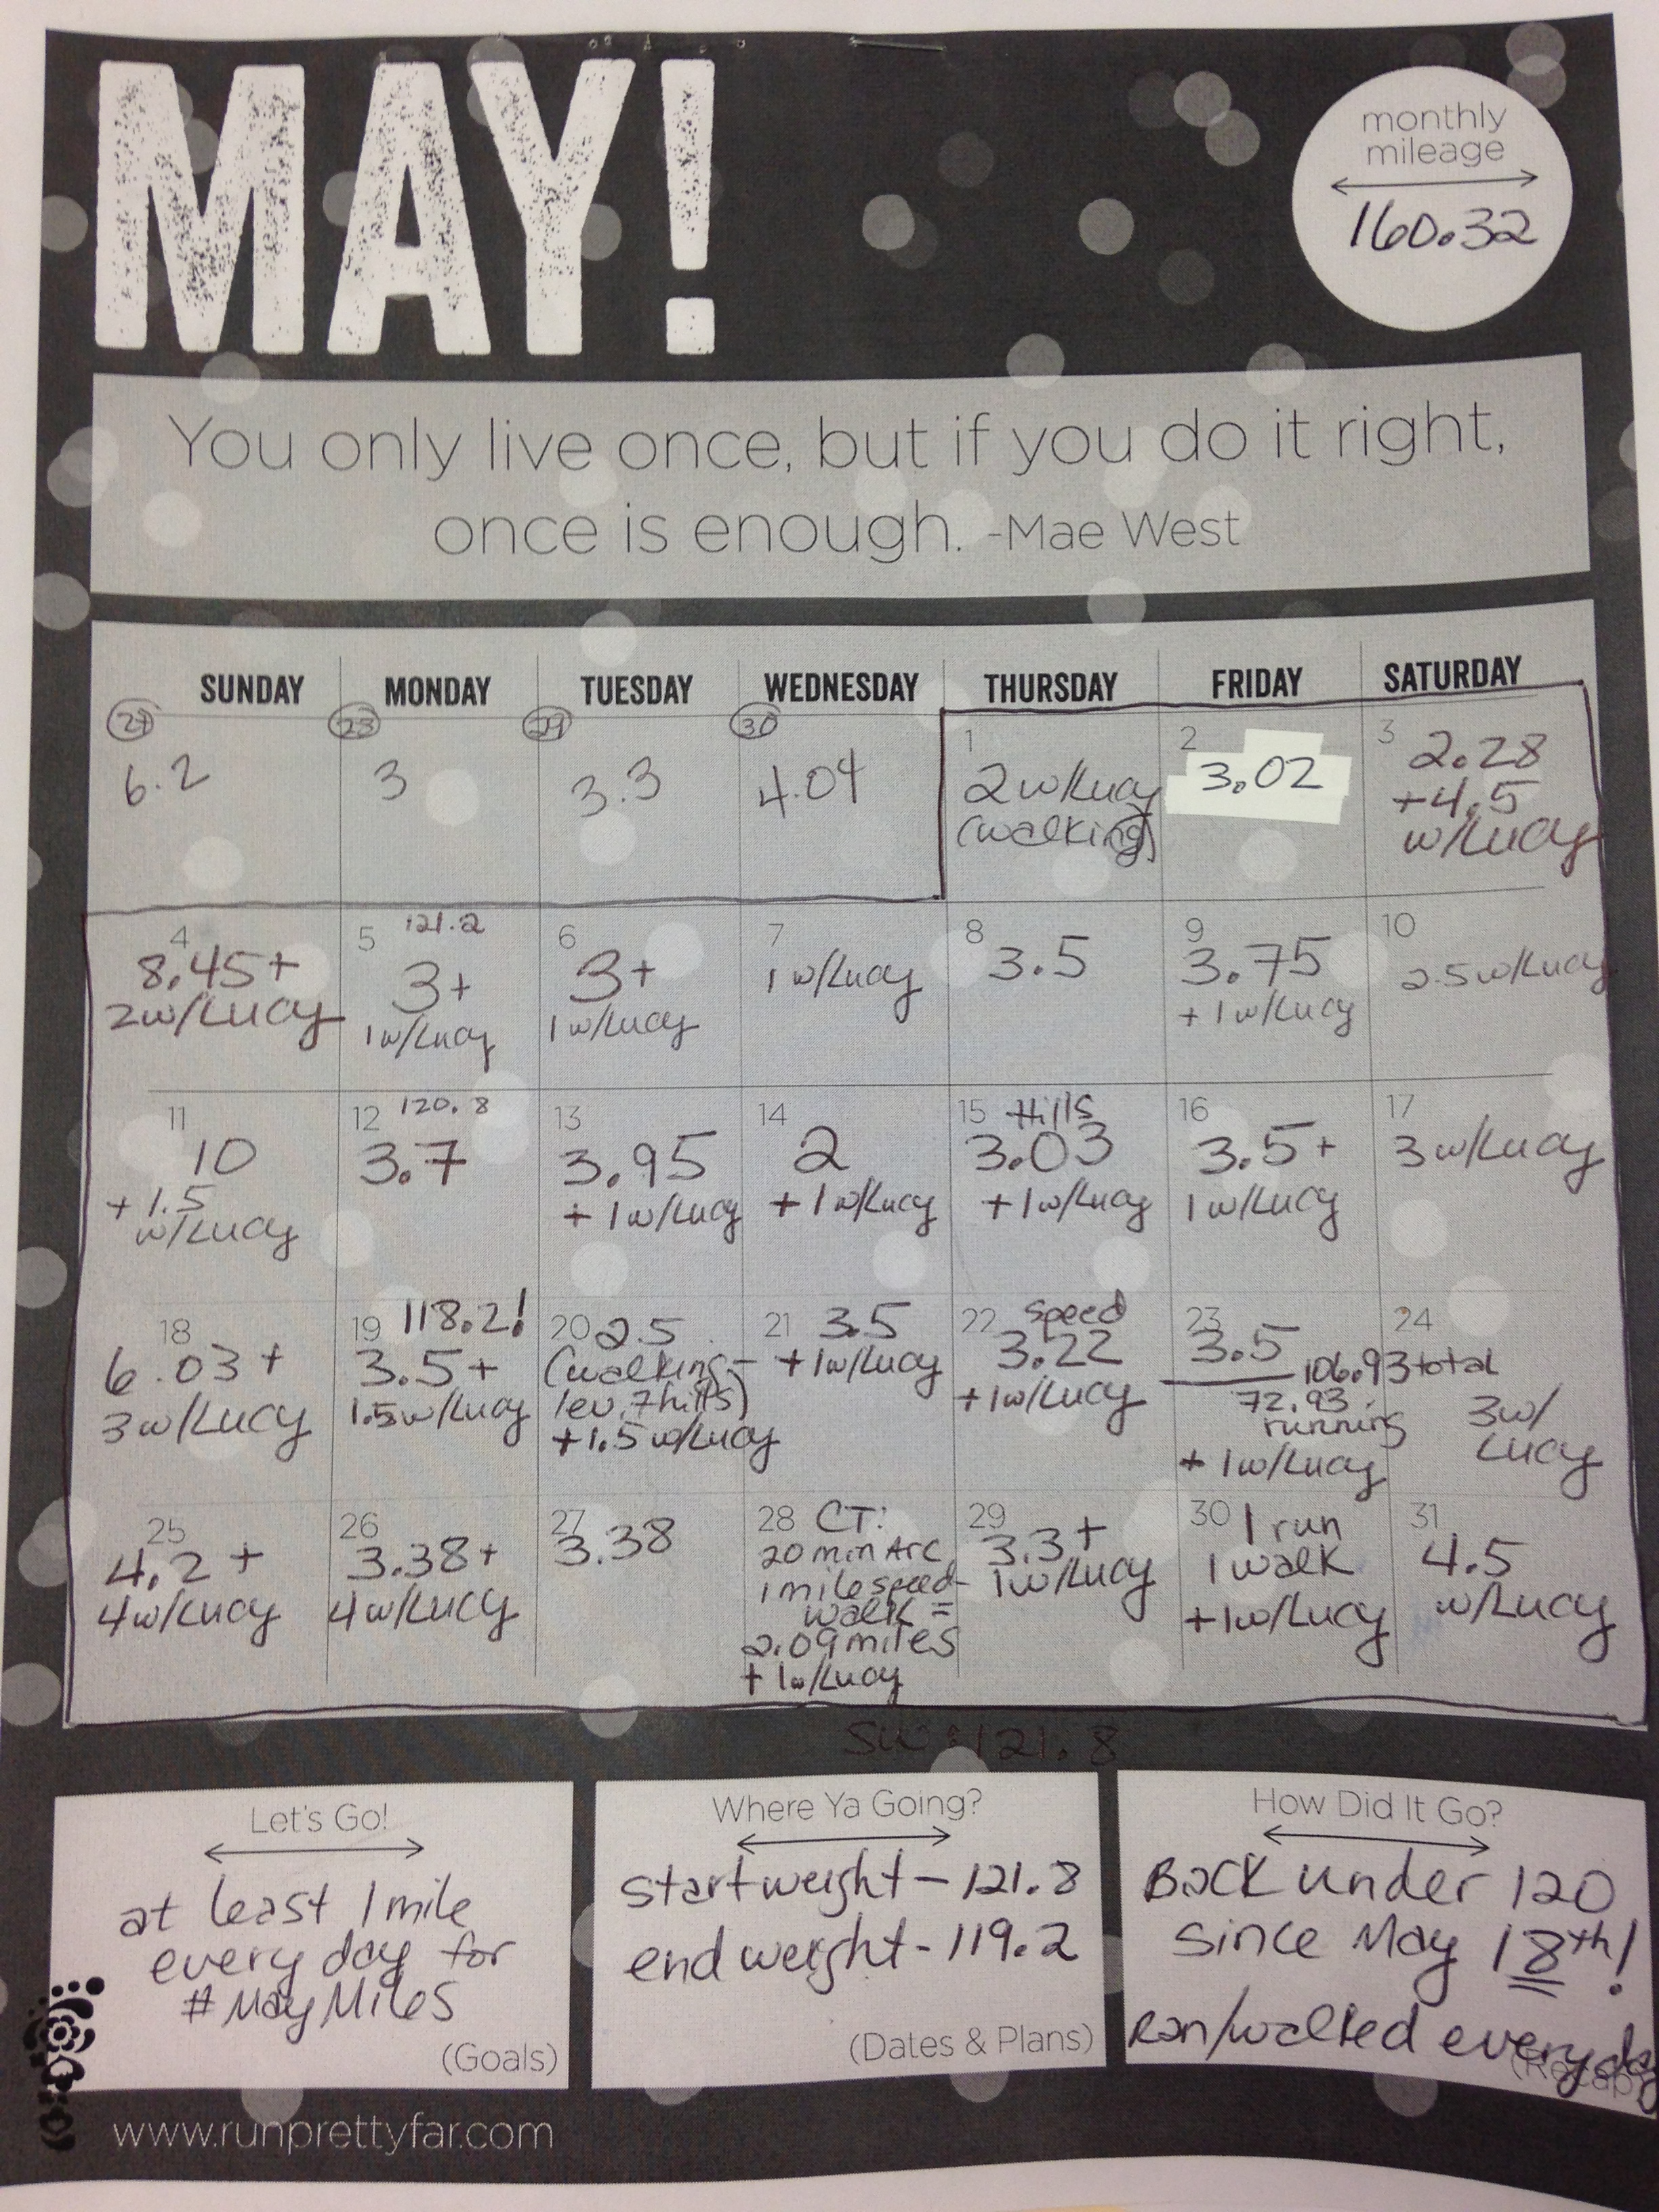 MAY!
monthly
mileage
160.32
You only live once, but if you do it right,
once is enough. -Mae West
SUNDAY MONDAY TUESDAY WEDNESDAY THURSDAY FRIDAY SATURDAY
29 30
6.2
3
3.3
4.04
1
2 w/Lucy
(walking)
2
3.02
3
2.28
+4.5
w/Lucy
4
8.45+
2w/Lucy
5 121.2
3+
1w/Lucy
6
3+
1w/Lucy
7
1 w/Lucy
8
3.5
9
3.75
+ 1w/Lucy
10
2.5w/Lucy
11
10
+1.5
w/Lucy
12 120.8
3.7
13
3.95
+ 1w/Lucy
14
2
+1w/Lucy
15 Hills
3.03
+1w/Lucy
16
3.5+
1w/Lucy
17
3w/Lucy
18
6.03+
3w/Lucy
19 118.2!
3.5+
1.5w/Lucy
20 2.5
(walking-
lev. 7 hills)
+1.5w/Lucy
21 3.5
+1w/Lucy
22 speed
3.22
+1w/Lucy
23
3.5
106.93 total
72.93
running
+ 1w/Lucy
24
3w/
Lucy
25
4.2+
4w/Lucy
26
3.38+
4w/Lucy
27
3.38
28 CT:
20 min Arc
1 mile speed-
walk =
2.09 miles
+ 1w/Lucy
29
3.3+
1w/Lucy
30 1 run
1 walk
+1w/Lucy
31
4.5
w/Lucy
SW: 121.8
Let's Go!
at least 1 mile
every day for
#MayMiles
(Goals)
Where Ya Going?
start weight – 121.8
end weight - 119.2
(Dates & Plans)
How Did It Go?
Back under 120
since May 18th!
Ran/walked everyday
(Recap)
www.runprettyfar.com